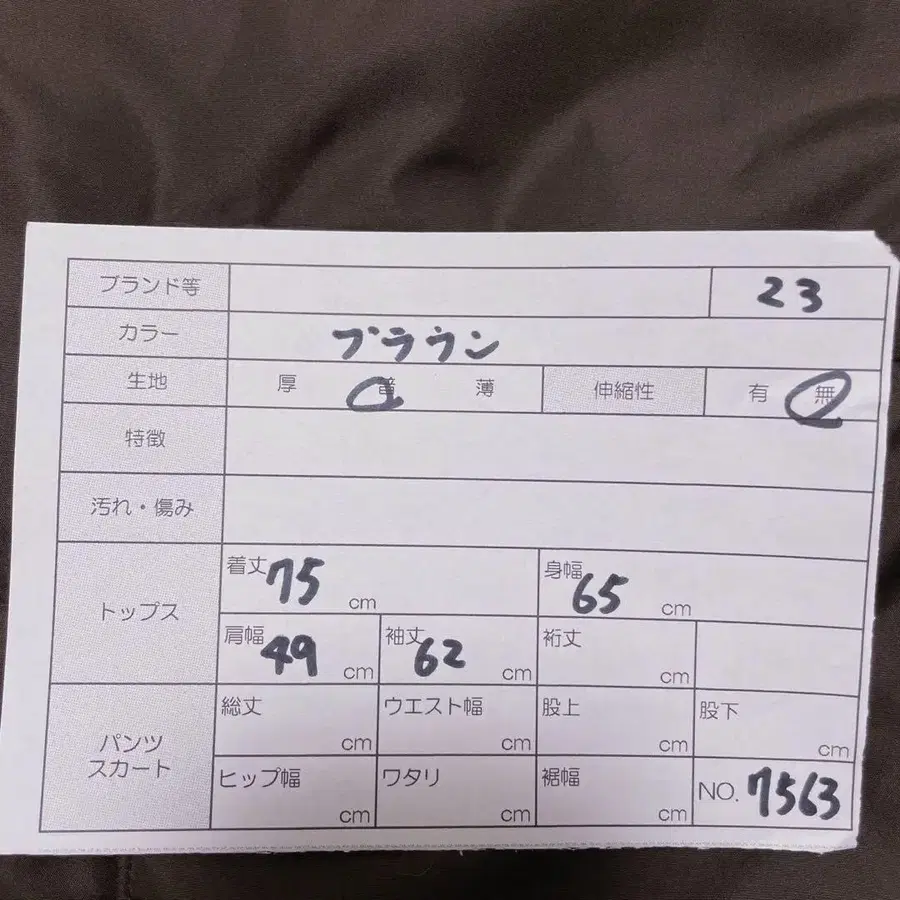 ブランド等 23
カラー ブラウン
生地 厚 普 薄 伸縮性 有 無
特徴
汚れ・傷み
トップス 着丈 75 cm 身幅 65 cm
肩幅 49 cm 袖丈 62 cm 裄丈 cm
パンツ
スカート
総丈 cm ウエスト幅 cm 股上 cm 股下 cm
ヒップ幅 cm ワタリ cm 裾幅 cm NO. 7563